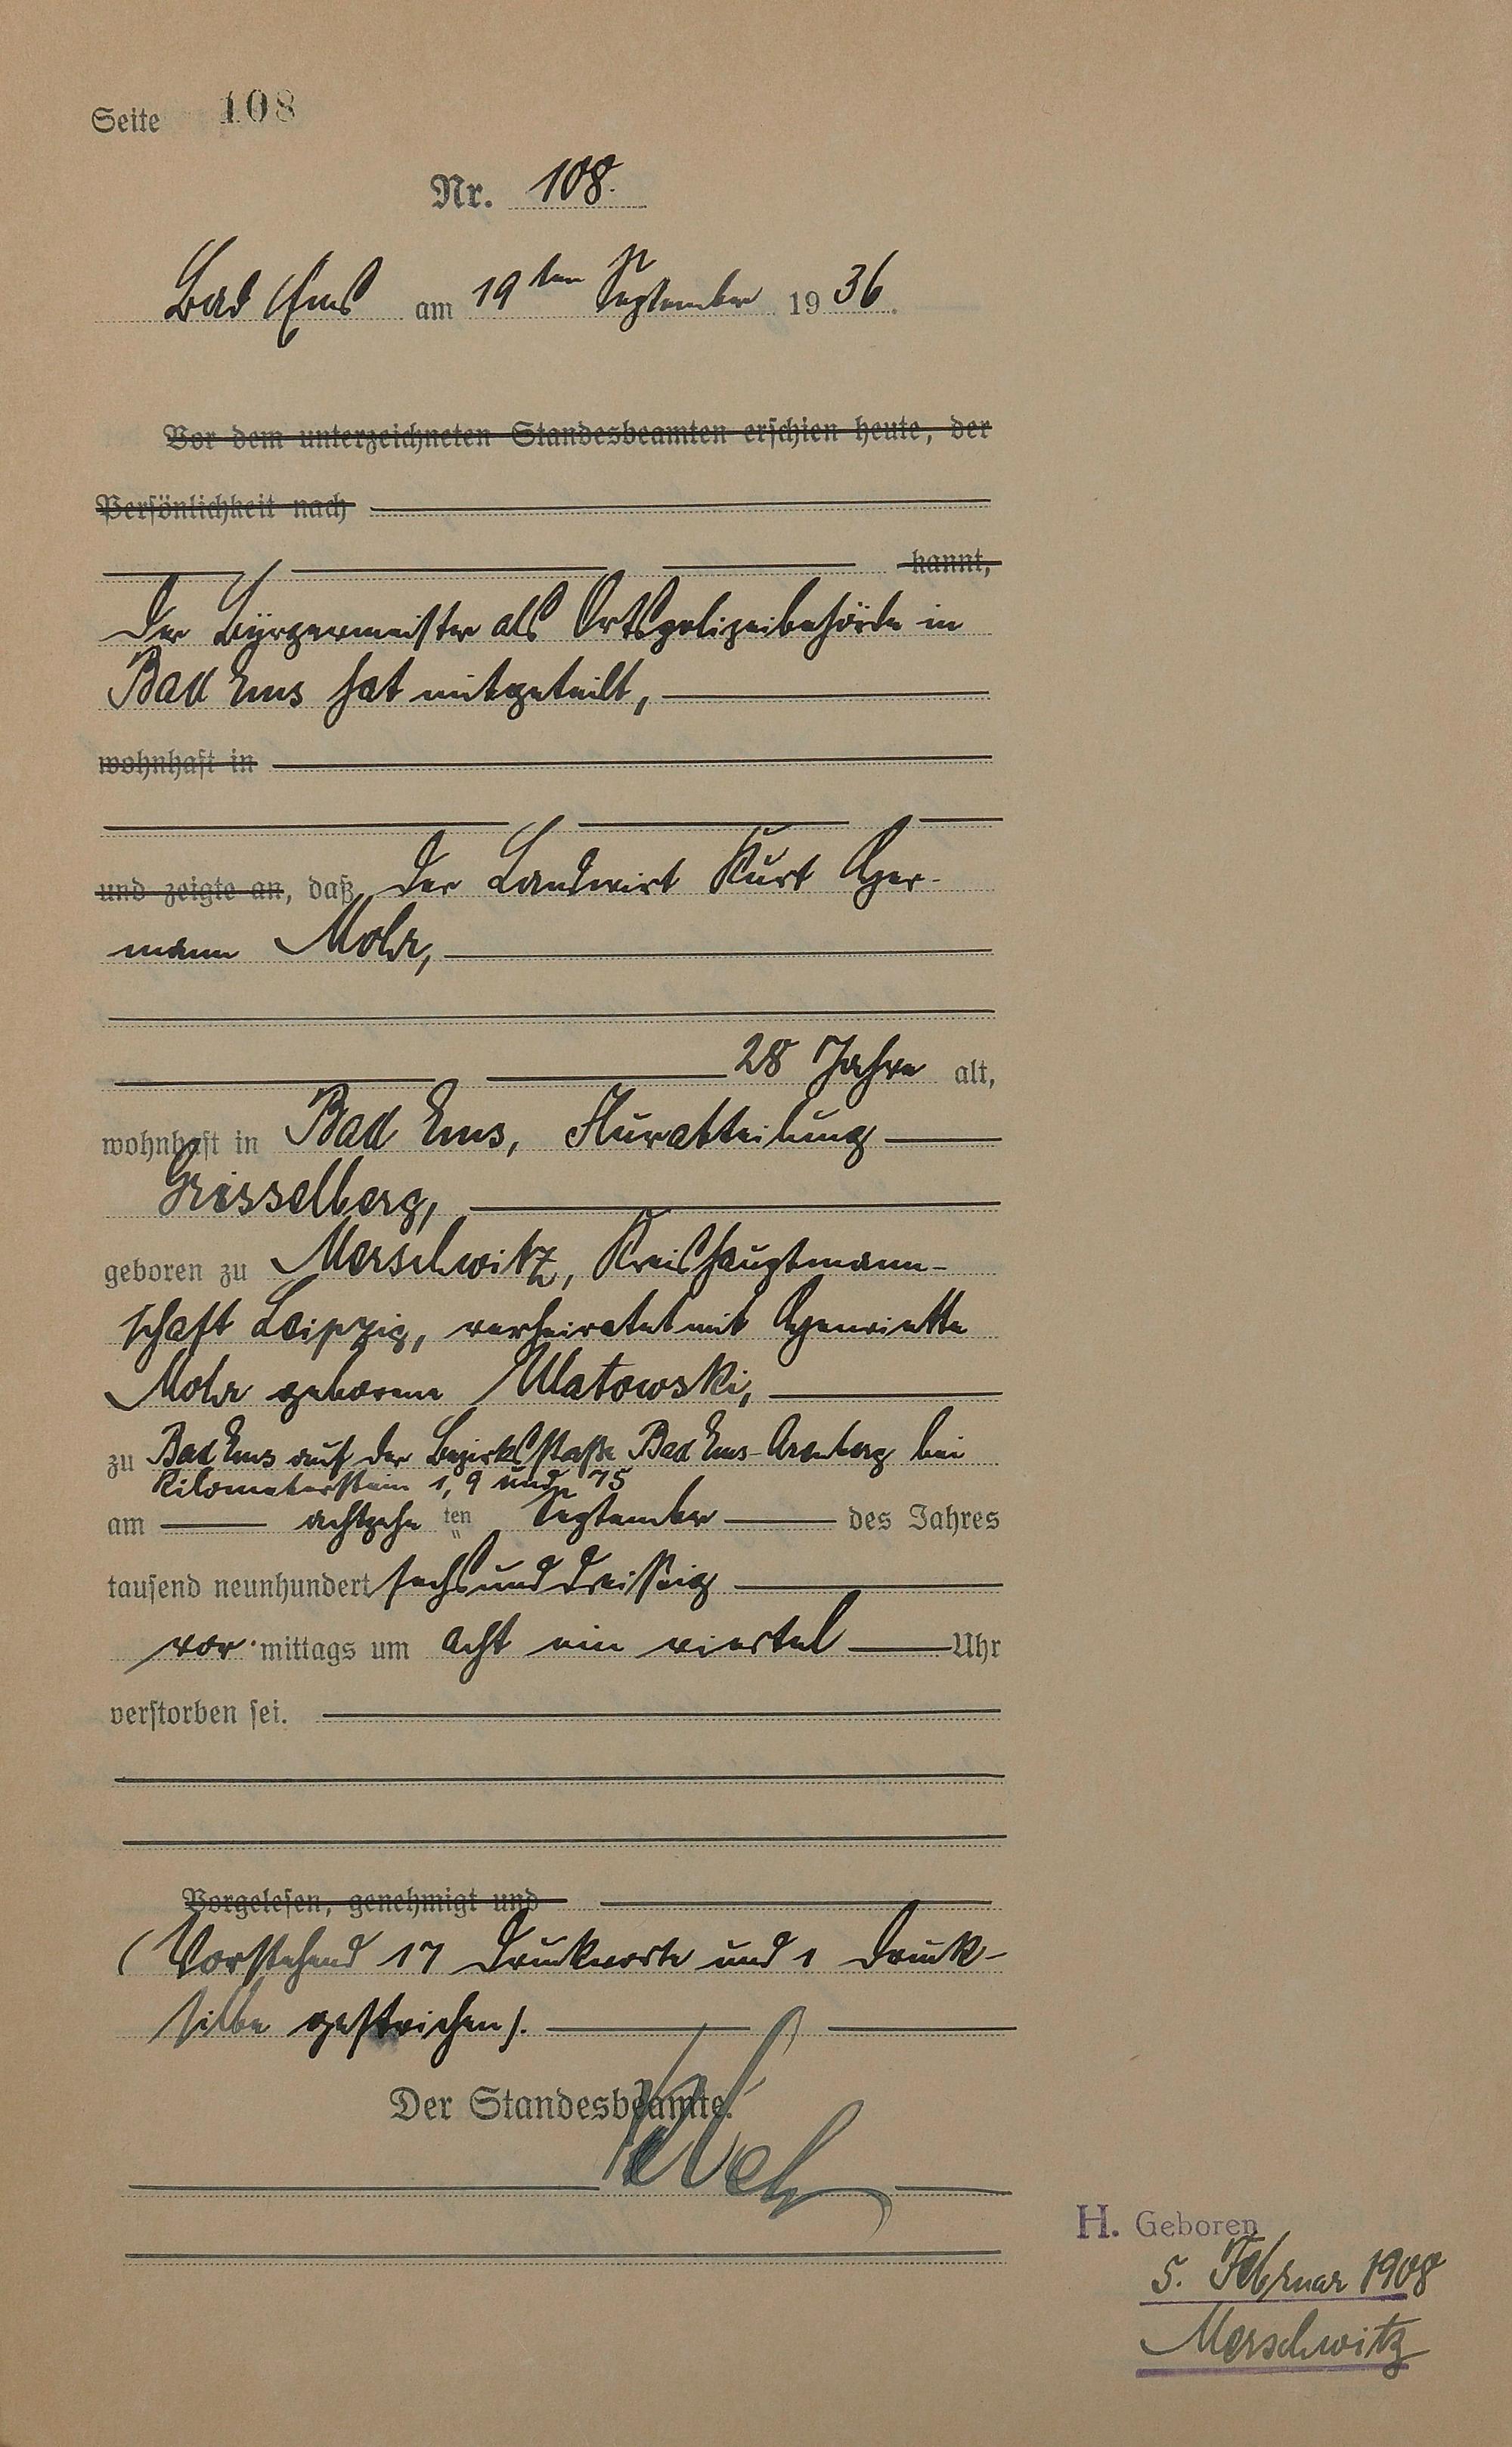 Seite 108
Nr. 108.
Bad Ems am 19ten September 1936.
Vor dem unterzeichneten Standesbeamten erschien heute, der
Persönlichkeit nach
kannt,
Der Bürgermeister als Ortspolizeibehörde in
Bad Ems hat mitgeteilt,
wohnhaft in
und zeigte an, daß der Landwirt Kurt Her-
mann Mohr,
28 Jahre alt,
wohnhaft in Bad Ems, Flurabteilung
Grisselberg,
geboren zu Merschwitz, Kreishauptmann-
schaft Leipzig, verheiratet mit Henriette
Mohr geborene Ulatowski,
zu Bad Ems auf der Bezirksstraße Bad Ems-Arenberg bei
Kilometerstein 1,9 und 75
am achtzehn ten September des Jahres
tausend neunhundert sechsunddreißig
vor mittags um acht ein viertel Uhr
verstorben sei.
Vorgelesen, genehmigt und
(Vorstehend 17 Druckworte und 1 Druck-
silbe gestrichen).
Der Standesbeamte.
H. Geboren
5. Februar 1908
Merschwitz